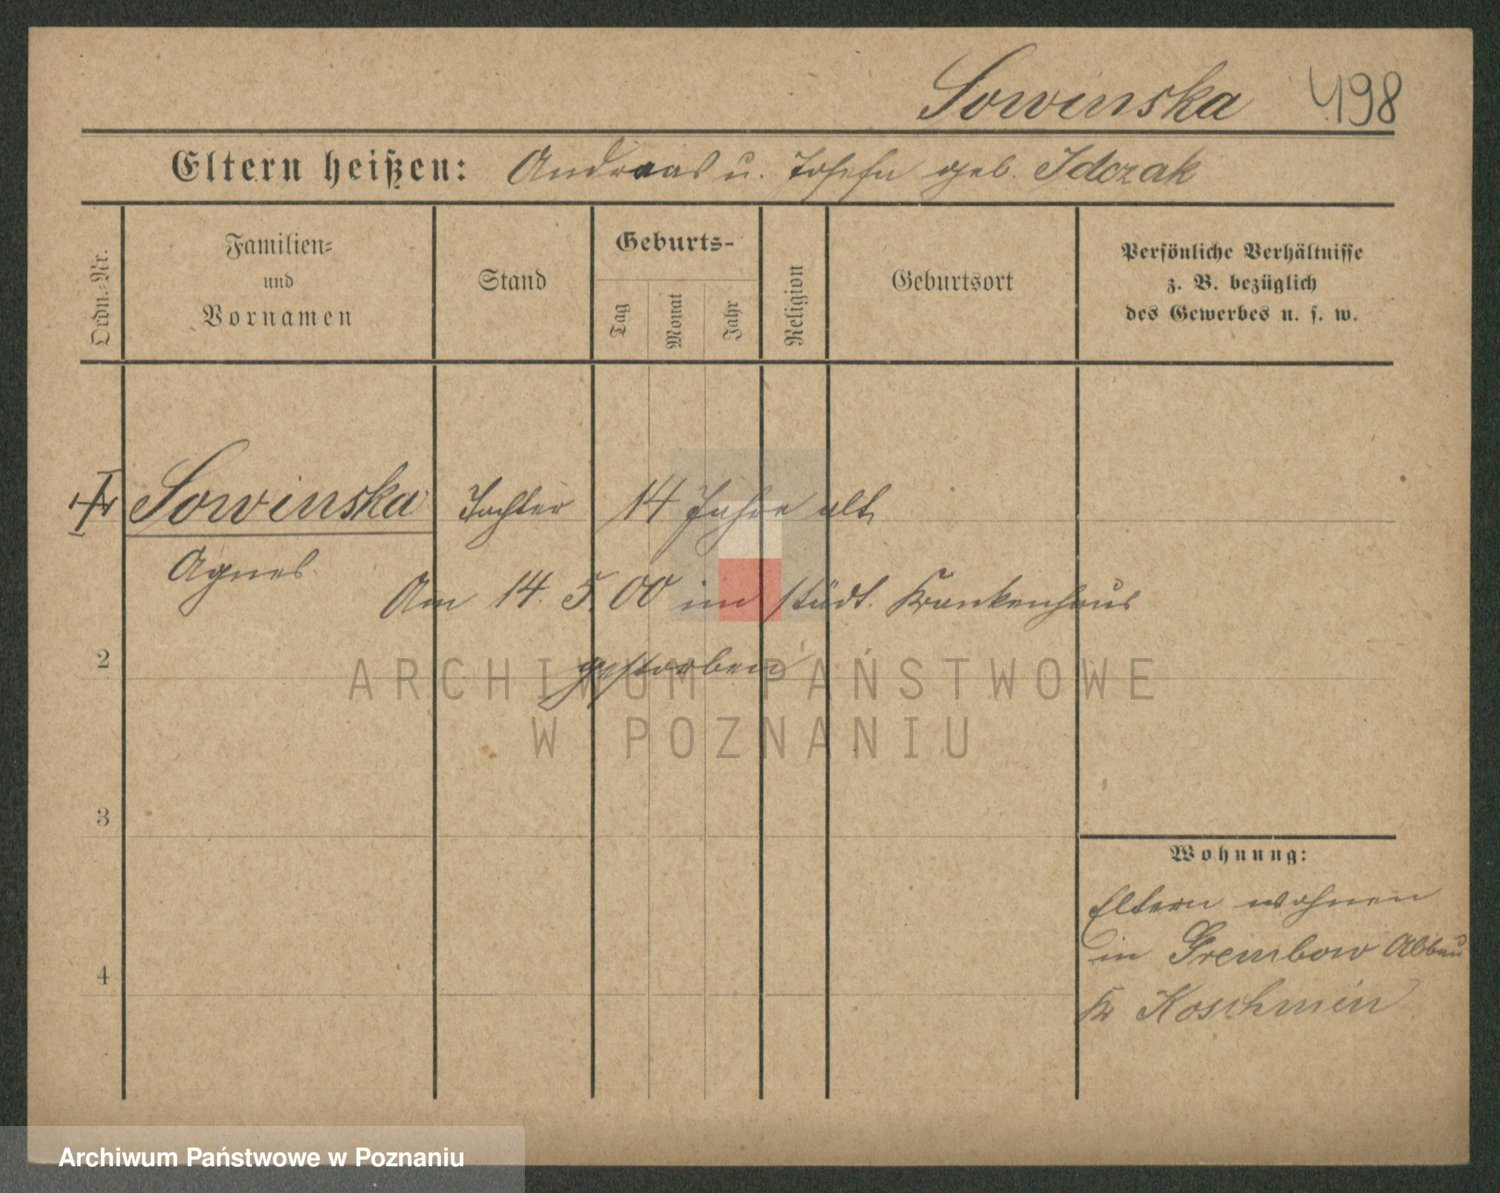 Sowinska 498
Eltern heißen: Andreas u. Josefa geb. Idczak
Ordn.-Nr.
Familien-
und
Vornamen
Stand
Geburts-
Tag
Monat
Jahr
Religion
Geburtsort
Persönliche Verhältnisse
z. B. bezüglich
des Gewerbes u. s. w.
Sowinska Tochter 14 Jahre alt
Agnes
Am 14. 5. 00 im städt. Krankenhaus
2 gestorben
3
4
Wohnung:
Eltern wohnen
in Grembow Abbau
Kr Koschmin
ARCHIWUM PAŃSTWOWE
W POZNANIU
Archiwum Państwowe w Poznaniu